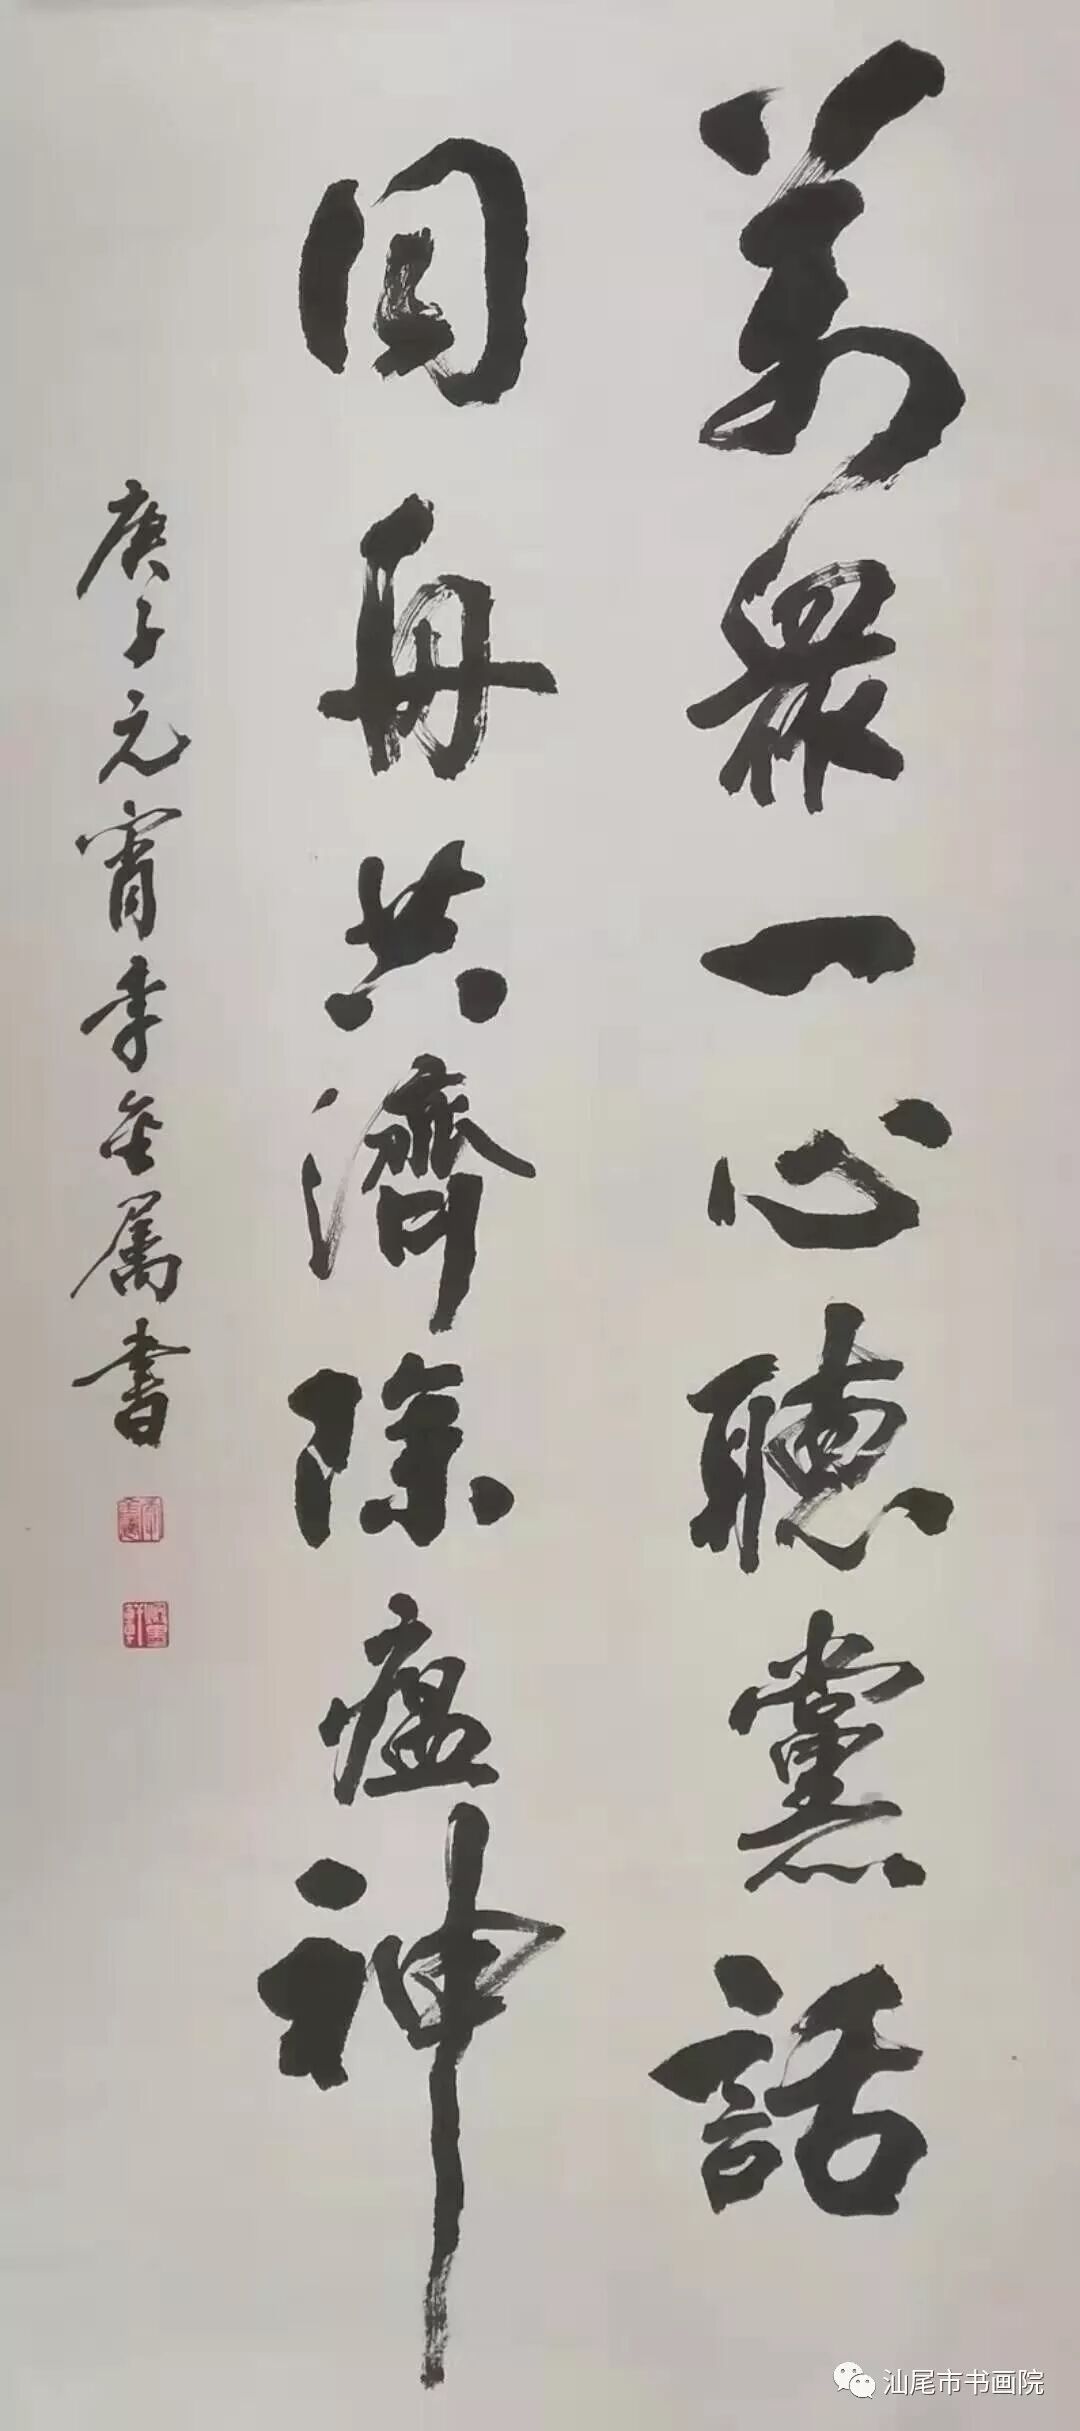 萬眾一心聽黨話
同舟共濟除瘟神
庚子元宵李金属書
汕尾市书画院